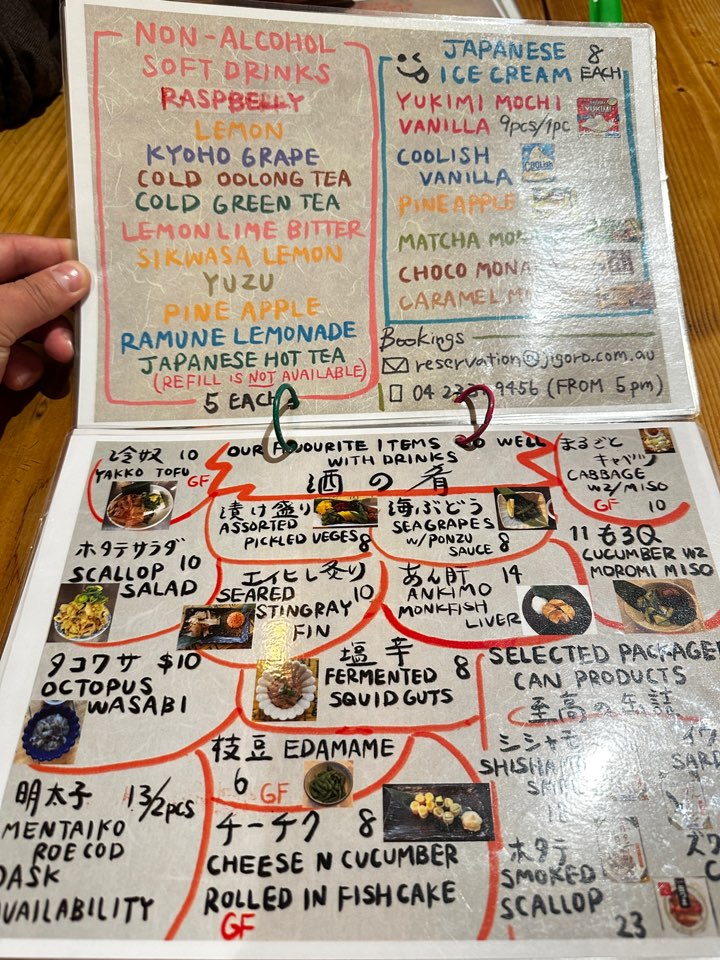 NON-ALCOHOL
SOFT DRINKS
RASPBELLY
LEMON
KYOHO GRAPE
COLD OOLONG TEA
COLD GREEN TEA
LEMON LIME BITTER
SIKWASA LEMON
YUZU
PINE APPLE
RAMUNE LEMONADE
JAPANESE HOT TEA
(REFILL IS NOT AVAILABLE)
5 EACH
JAPANESE 8
ICE CREAM EACH
YUKIMI MOCHI
VANILLA 9pcs/1pc
COOLISH
VANILLA
PINEAPPLE
MATCHA
CHOCO
CARAMEL
Bookings
reservation@jigoro.com.au
04 9456 (FROM 5pm)
OUR FAVOURITE ITEMS GO WELL
WITH DRINKS
酒の肴
冷奴 10
YAKKO TOFU
GF
漬け盛り
ASSORTED
PICKLED VEGES 8
海ぶどう
SEAGRAPES
W/PONZU
SAUCE 8
まるごと
キャベツ
CABBAGE
WZ/MISO
GF 10
ホタテサラダ
SCALLOP 10
SALAD
エイヒレ炙り
SEARED 10
STINGRAY
FIN
あん肝 14
ANKIMO
MONKFISH
LIVER
11 もろQ
CUCUMBER WZ
MOROMI MISO
タコワサ $10
OCTOPUS
WASABI
塩辛
FERMENTED 8
SQUID GUTS
SELECTED PACKAGE
CAN PRODUCTS
至高の缶詰
シシャモ
ホタテ
SMOKED
SCALLOP
23
枝豆 EDAMAME
6 GF
明太子 13/2pcs
MENTAIKO
ROE COD
ASK
AVAILABILITY
チーチク 8
CHEESE N CUCUMBER
ROLLED IN FISHCAKE
GF